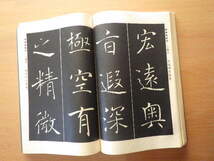 宏遠奧
旨遐深
極空有
之精微